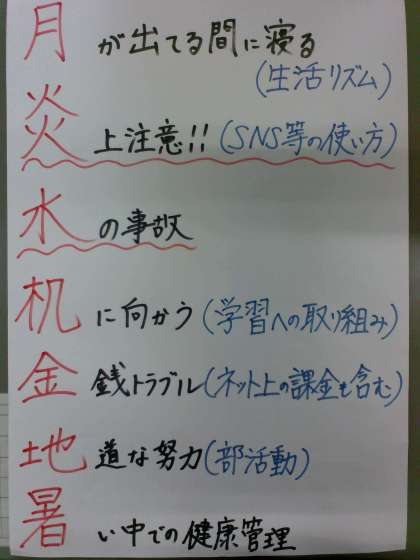 月が出てる間に寝る
(生活リズム)
炎上注意!!(SNS等の使い方)
水の事故
机に向かう(学習への取り組み)
金銭トラブル(ネット上の課金も含む)
地道な努力(部活動)
暑い中での健康管理